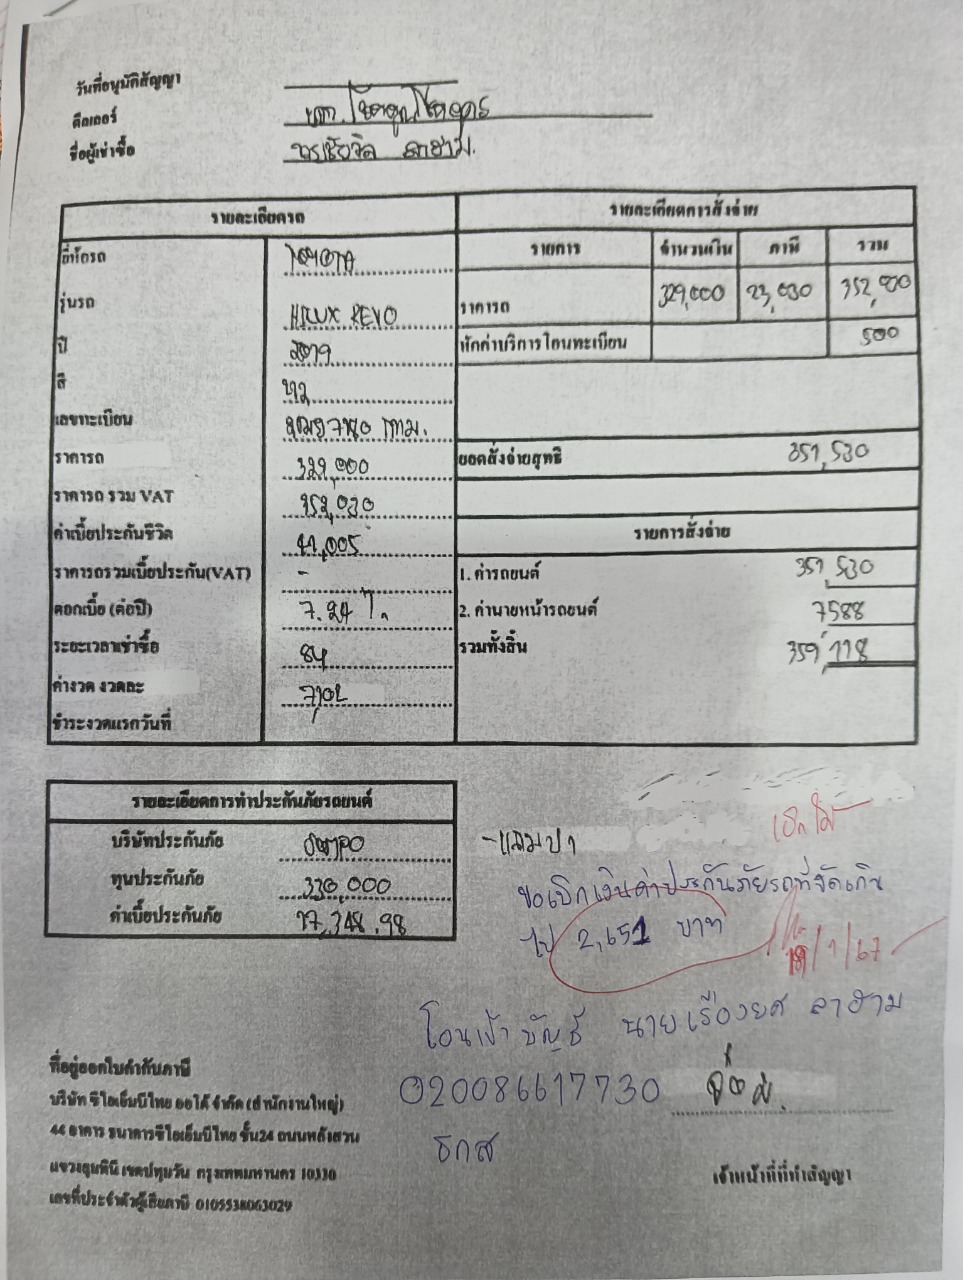 วันที่อนุมัติสัญญา
ดีลเลอร์
ชื่อผู้เช่าซื้อ
รายละเอียดรถ
รายละเอียดการสั่งจ่าย
ยี่ห้อรถ TOYOTA
รายการ จำนวนเงิน ภาษี รวม
รุ่นรถ HILUX REVO
ราคารถ 329,000 23,030
ปี 2019
หักค่าบริการโอนทะเบียน 500
สี
เลขทะเบียน กทม.
ราคารถ 329,000
ยอดสั่งจ่ายสุทธิ 351,530
ราคารถ รวม VAT 352,030
ค่าเบี้ยประกันชีวิต 41,005
รายการสั่งจ่าย
ราคารถรวมเบี้ยประกัน(VAT) -
1. ค่ารถยนต์ 351,530
ดอกเบี้ย (ต่อปี) 7.24 %
2. ค่านายหน้ารถยนต์ 7588
ระยะเวลาเช่าซื้อ 84
รวมทั้งสิ้น 359,118
ค่างวด งวดละ 7,102
ชำระงวดแรกวันที่
รายละเอียดการทำประกันภัยรถยนต์
บริษัทประกันภัย
ทุนประกันภัย 330,000
ค่าเบี้ยประกันภัย 17,348.98
ขอเบิกเงินค่าประกันภัยรถที่จัดเกิน
ไป 2,651 บาท
18/1/67
โอนเข้าบัญชี นายเรืองยศ ลาฮาม
020086617730
ธกส
ที่อยู่ออกใบกำกับภาษี
บริษัท ซีไอเอ็มบีไทย ออโต้ จำกัด (สำนักงานใหญ่)
44 อาคาร ธนาคารซีไอเอ็มบีไทย ชั้น24 ถนนหลังสวน
แขวงลุมพินี เขตปทุมวัน กรุงเทพมหานคร 10330
เลขที่ประจำตัวผู้เสียภาษี 0105538063029
เจ้าหน้าที่ที่ทำสัญญา